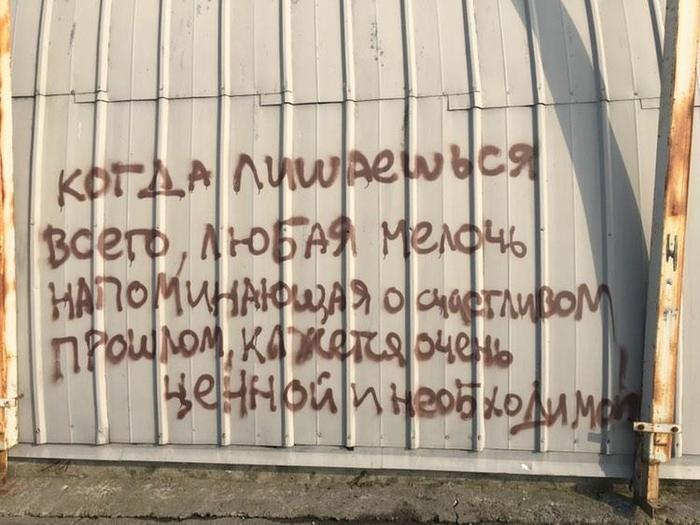 когда лишаешься
всего, любая мелочь
напоминающая о счастливом
прошлом, кажется очень
ценной и необходимой!